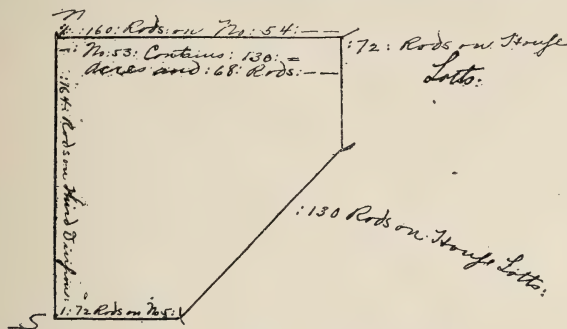 N
:160: Rods on No: 54: — —
No: 53: Contains: 130: =
Acres and: 68: Rods: — —
:72: Rods on House
Lotts:
:164: Rods on Third Division:
:130 Rods on House Lotts:
:72 Rods on No 51
S